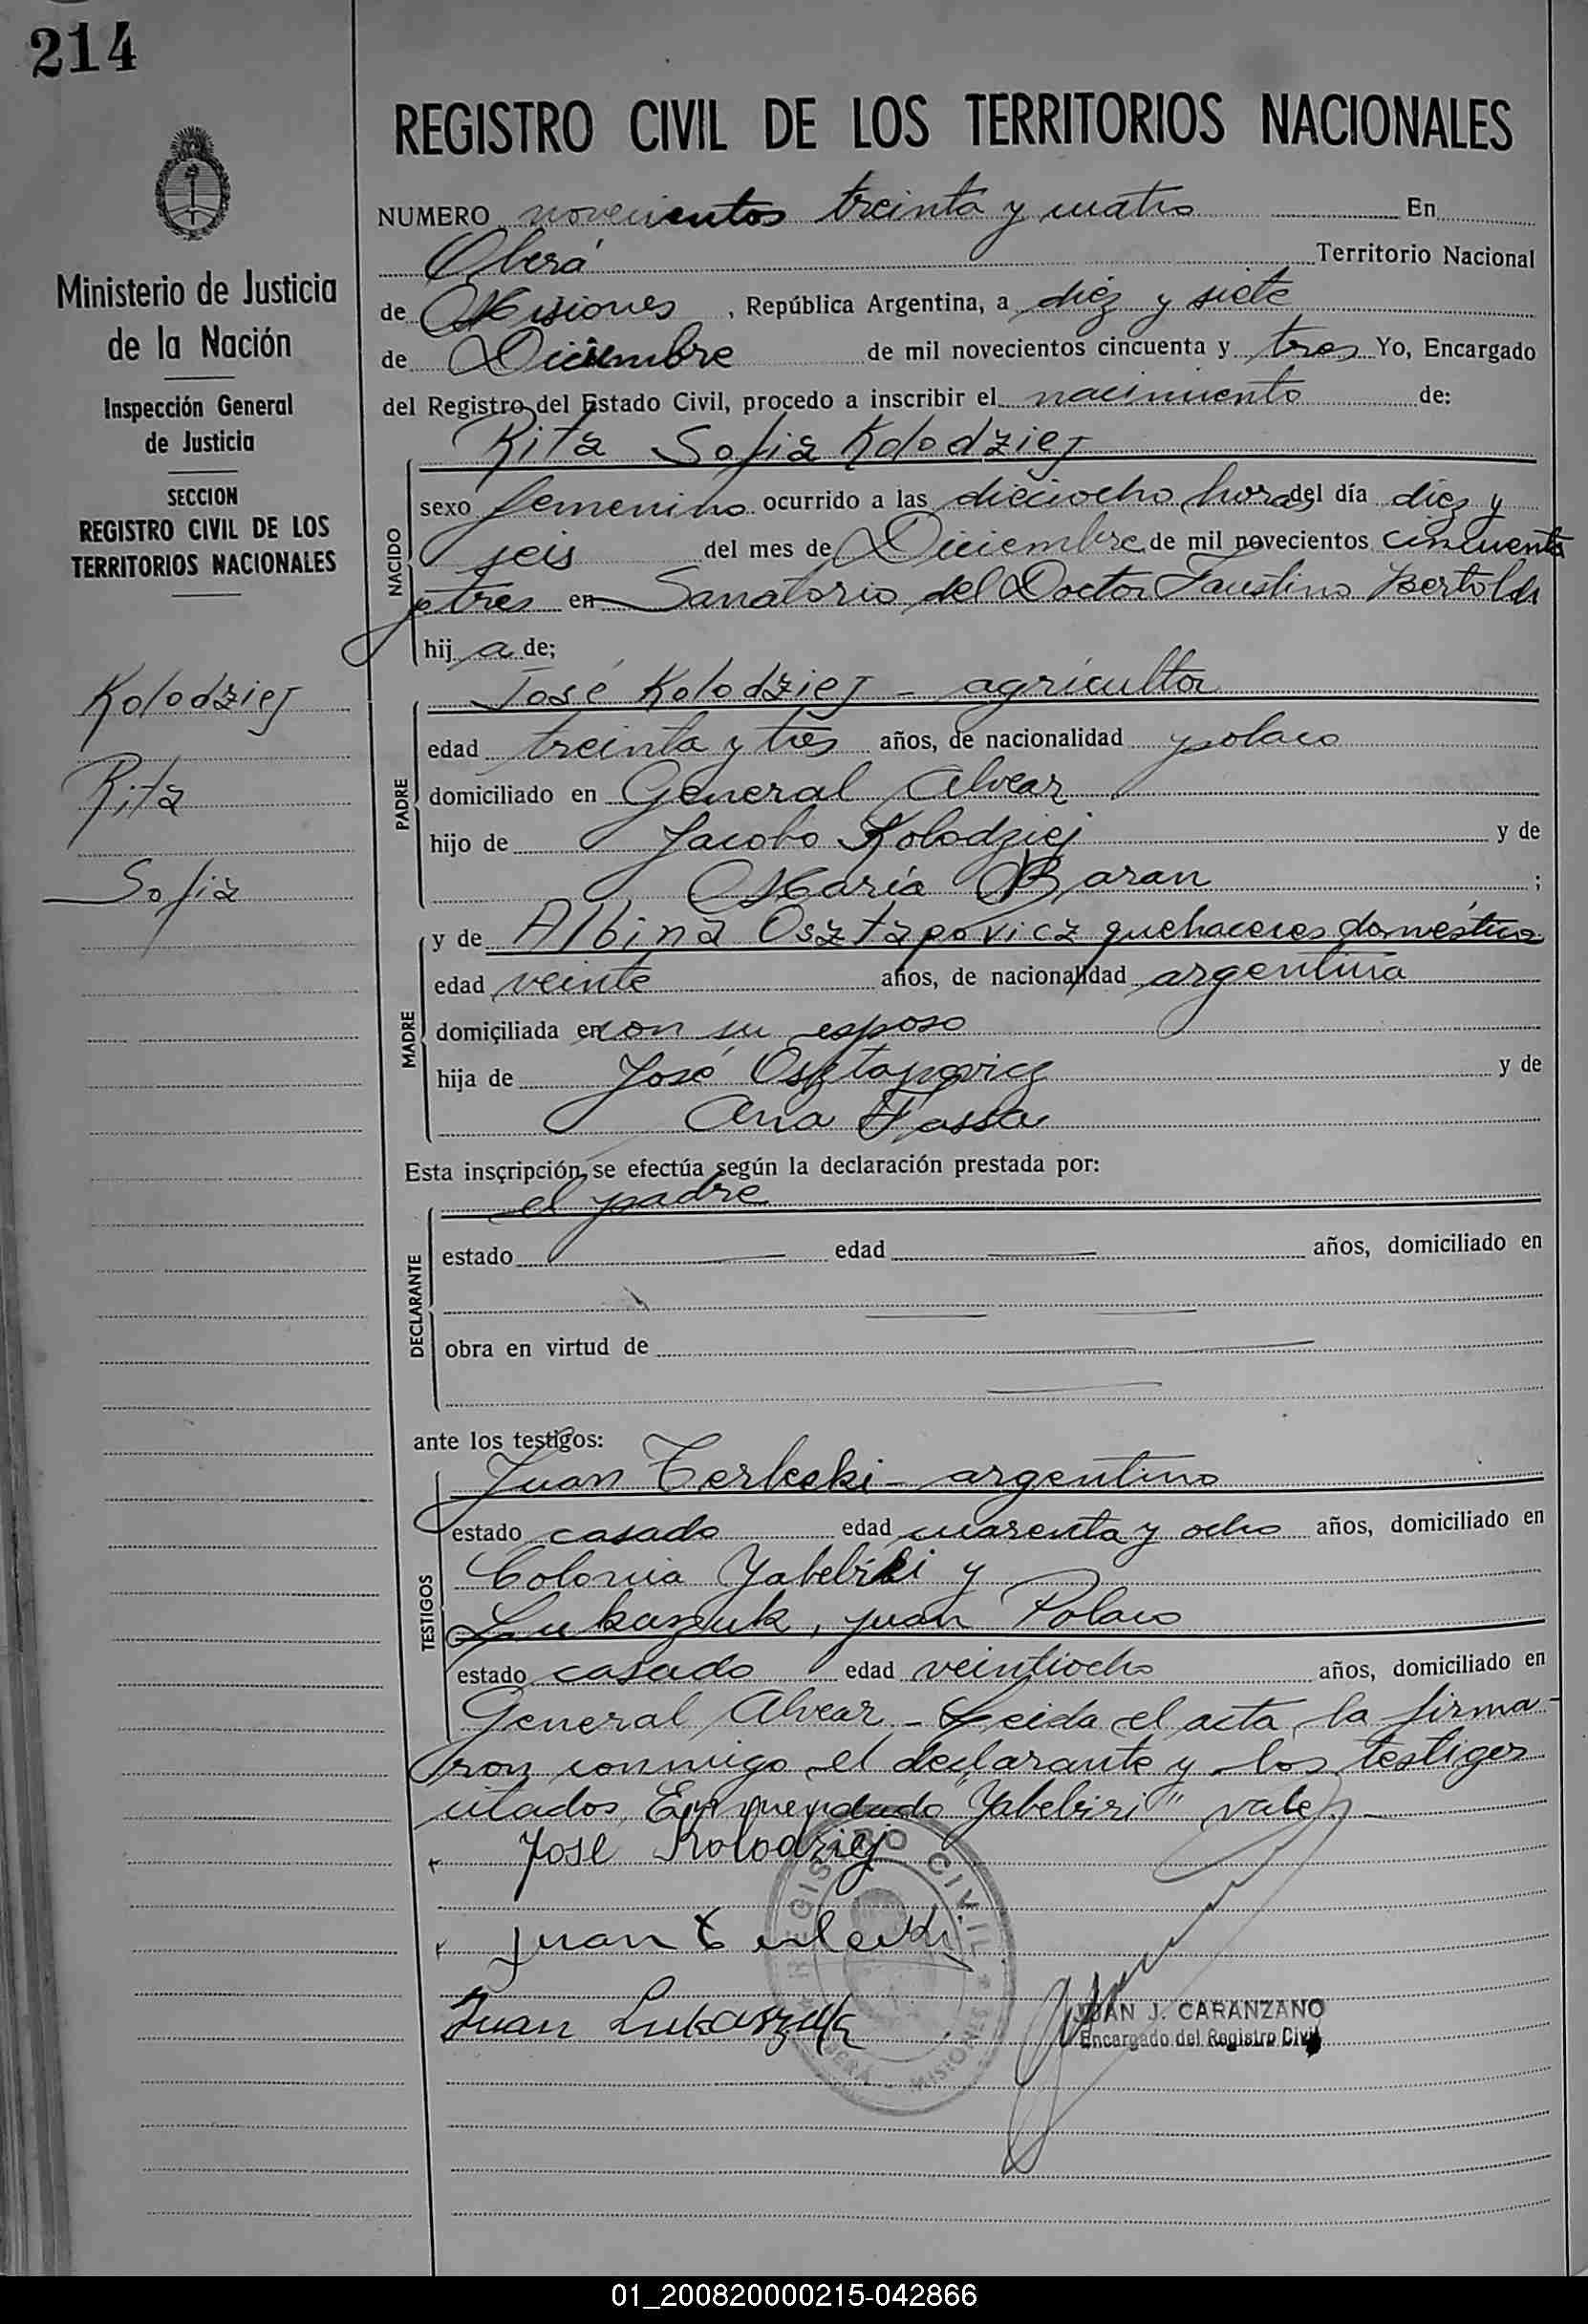 214
REGISTRO CIVIL DE LOS TERRITORIOS NACIONALES
NUMERO novecientos treinta y cuatro En
Oberá Territorio Nacional
de Misiones, República Argentina, a diez y siete
de Diciembre de mil novecientos cincuenta y tres Yo, Encargado
del Registro del Estado Civil, procedo a inscribir el nacimiento de:
Rita Sofia Kolodziej
Ministerio de Justicia
de la Nación
Inspección General
de Justicia
SECCION
REGISTRO CIVIL DE LOS
TERRITORIOS NACIONALES
NACIDO
sexo femenino ocurrido a las dieciocho horas del día diez y
seis del mes de Diciembre de mil novecientos cincuenta
y tres en Sanatorio del Doctor Faustino Bertoldi
hija de;
Kolodziej
Rita
Sofia
PADRE
José Kolodziej - agricultor
edad treinta y tres años, de nacionalidad polaco
domiciliado en General Alvear
hijo de Jacobo Kolodziej y de
María Baran;
MADRE
y de Albina Osztapovicz quehaceres domésticos
edad veinte años, de nacionalidad argentina
domiciliada en con su esposo
hija de José Osztapovicz y de
Ana Fassa
Esta inscripción se efectúa según la declaración prestada por:
el padre
DECLARANTE
estado edad años, domiciliado en
obra en virtud de
ante los testigos:
TESTIGOS
Juan Terlecki - argentino
estado casado edad cuarenta y ocho años, domiciliado en
Colonia Yabebiri y
Lukaszuk, Juan Polaco
estado casado edad veintiocho años, domiciliado en
General Alvear - Leida el acta la firma-
ron conmigo el declarante y los testigos
citados Enmendado "Yabebiri" vale
José Kolodziej
Juan Terlecki
Juan Lukaszuk
REGISTRO CIVIL
OBERÁ - MISIONES
JUAN J. CARANZANO
Encargado del Registro Civil
01_200820000215-042866